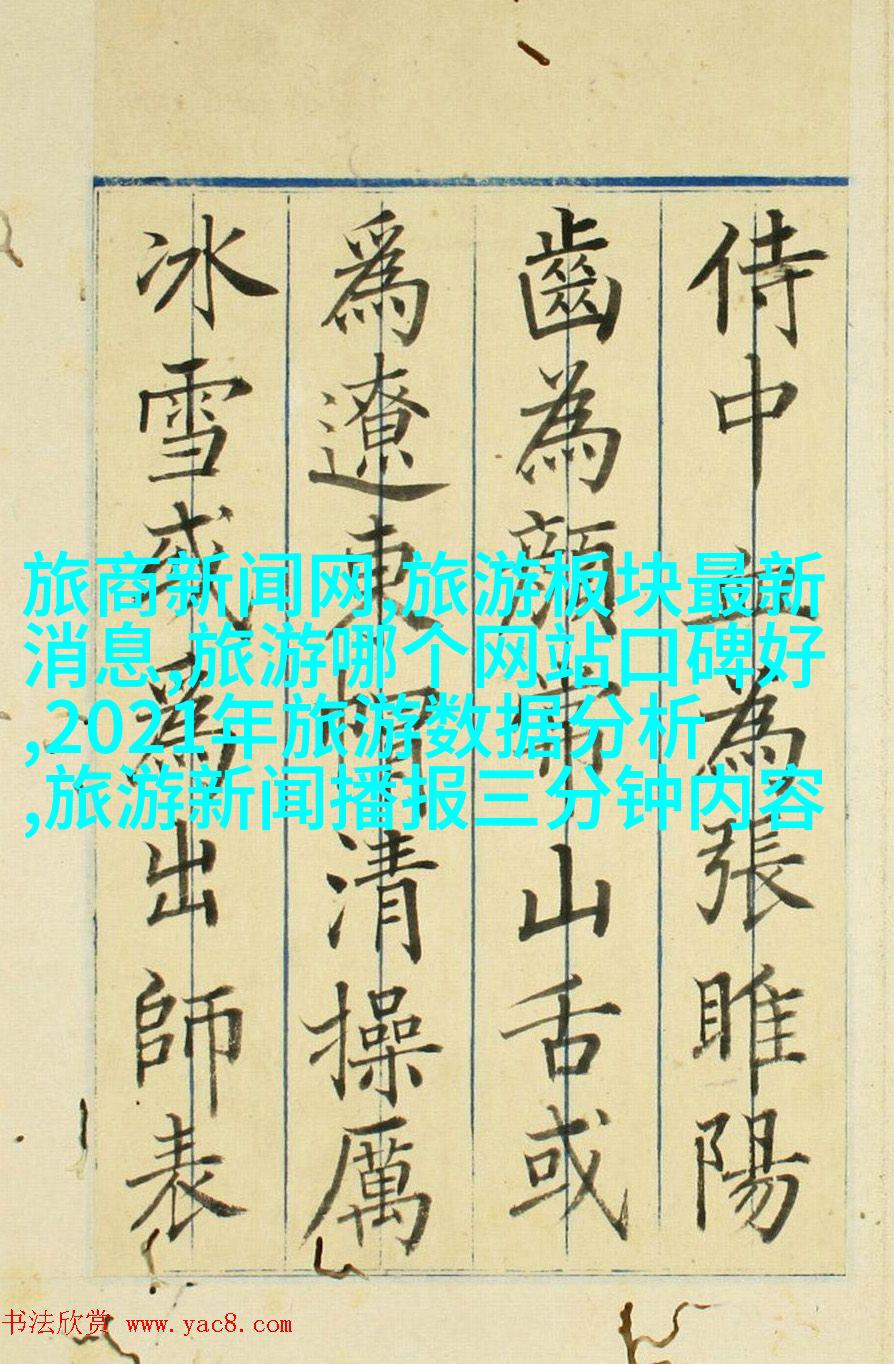 侍中血為張睢陽
齒為顏常山舌或
爲遼東帽清操厲
冰雪或爲出師表
旅商新闻网,旅游板块最新
消息,旅游哪个网站口碑好
,2021年旅游数据分析
,旅游新闻播报三分钟内容
书法欣赏 www.yac8.com